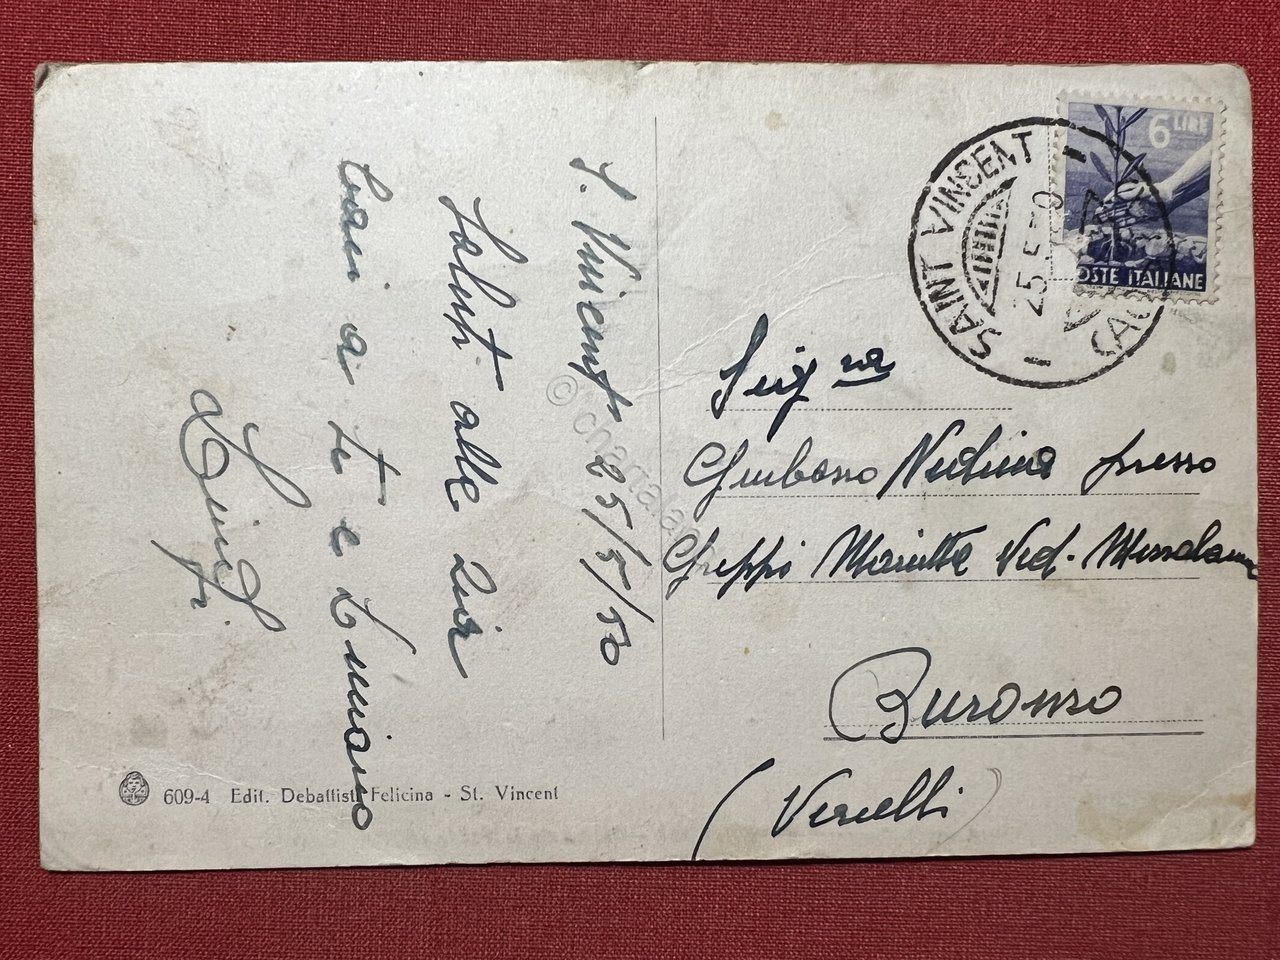 S. Vincent 25/5/50
Saluti alle zie
Cari a te e Luciano
Luigi
609-4 Edit. Debattista Felicina - St. Vincent
6 LIRE
POSTE ITALIANE
SAINT VINCENT
25.5.50
Sig na
presso
Greppi Marietta Ved.
Buronzo
(Vercelli)
© chartaland